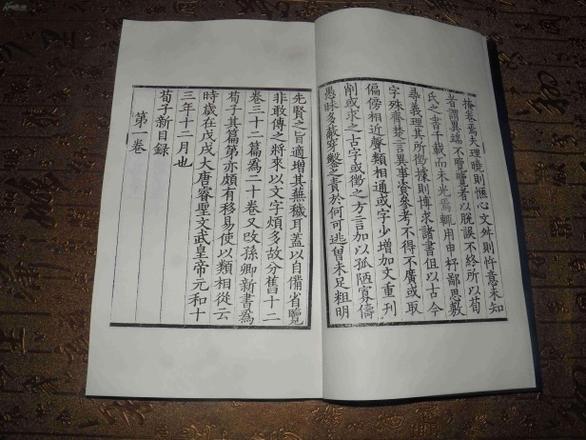 掩卷焉夫理曉則愜心文舛則忤意未知
者謂異端不覽覽者以脫誤不終所以荀
氏之書千載而未光焉輒用申杼鄙思敷
尋義理其所徵據則博求諸書但以古今
字殊齊楚言異事資參考不得不廣或取
偏傍相近聲類相通或字少增加文重刊
削或求之古字或徵之方言加以孤陋寡儔
愚昧多蔽穿鑿之責於何可逃曾未足粗明
先賢之旨適增其蕪穢耳蓋以自備省覽
非敢傳之將來以文字煩多故分舊十二
卷三十二篇為二十卷又改孫卿新書為
荀子其篇第亦頗有移易使以類相從云
時歲在戊戌大唐睿聖文武皇帝元和十
三年十二月也
荀子新目錄
第一卷